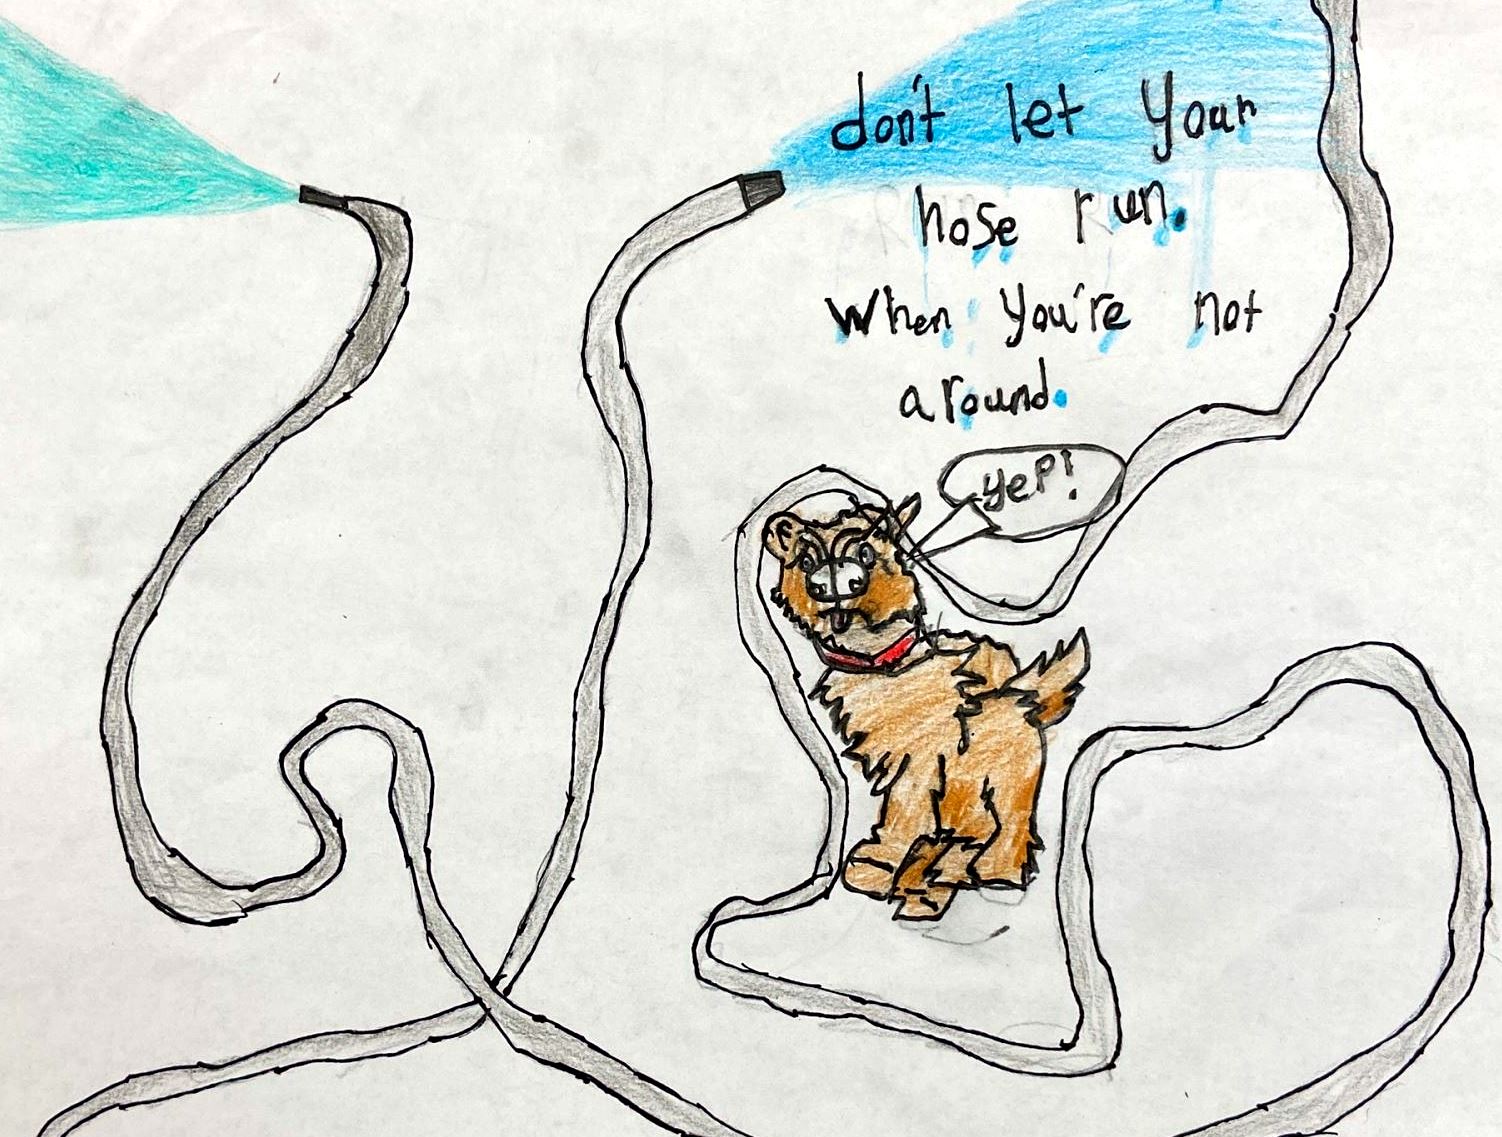 don't let your
hose run.
When you're not
around.
yep!